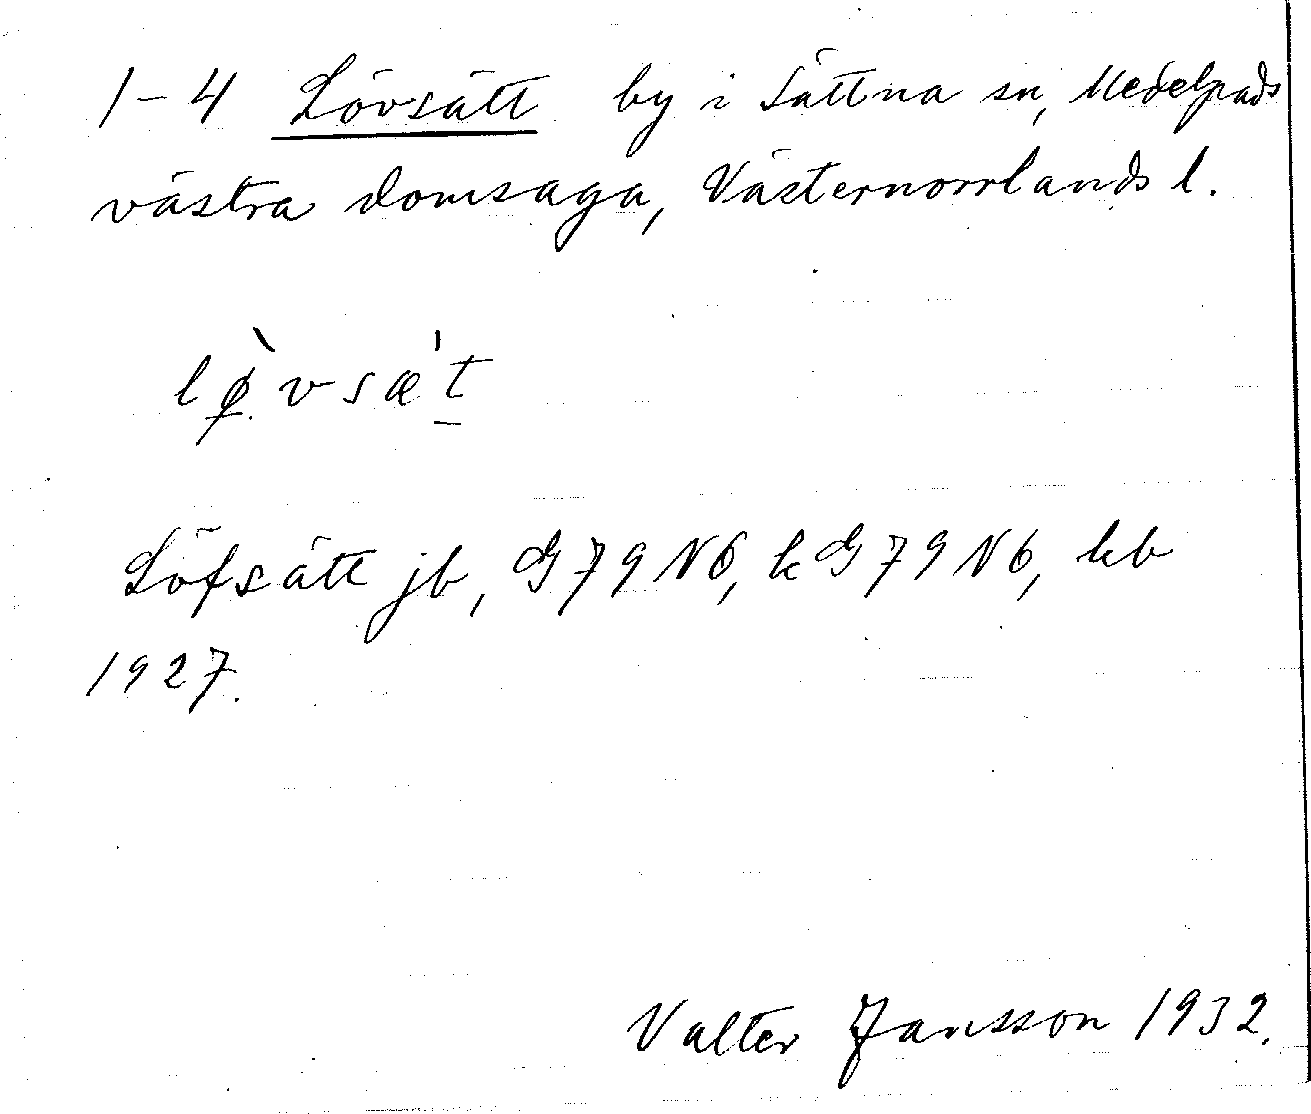 1-4 Lövsätt by i Sättna sn, Medelpads
västra domsaga, Västernorrlands l.
lø̀vsæ't
Löfsätt jb, G79N6, kG79N6, kb
1927.
Valter Jansson 1932.